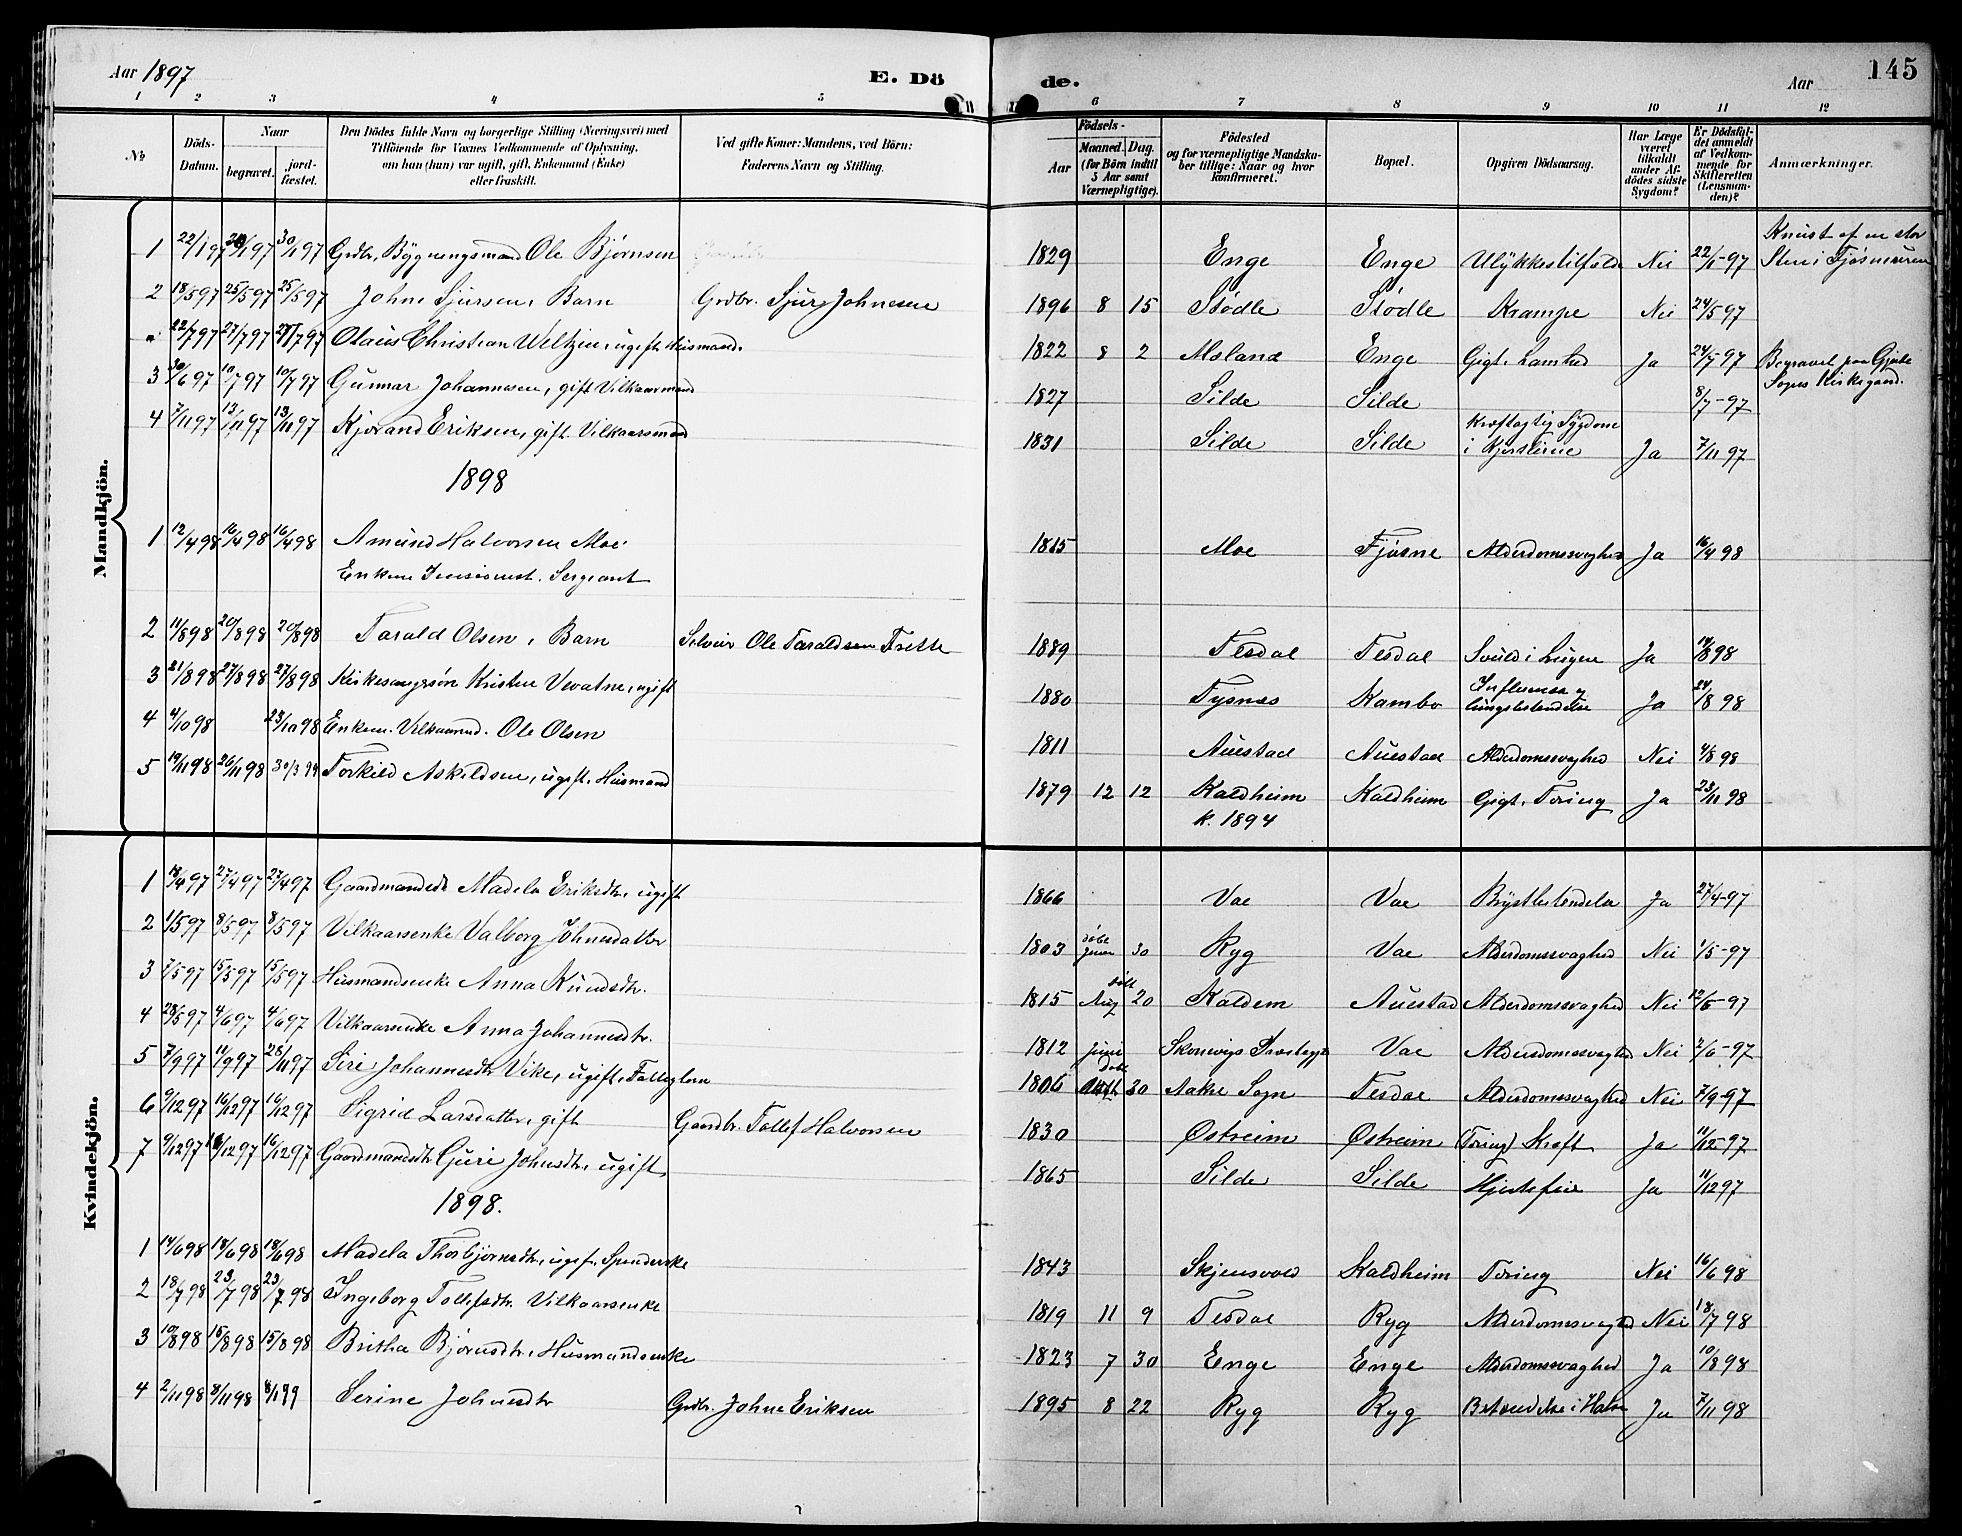 Aar 1897 E. Dö de. Aar 145
1 2 3 4 5 6 7 8 9 10 11 12
No
Döds-Datum.
Naar
begravet.
jordfæstet.
Den Dödes fulde Navn og borgerlige Stilling (Næringsvei) med
Tilföiende for Voxnes Vedkommende af Oplysning,
om han (hun) var ugift, gift, Enkemand (Enke)
eller fraskilt.
Ved gifte Koner: Mandens, ved Börn:
Faderens Navn og Stilling.
Födsels-
Aar
Maaned. Dag.
(for Börn indtil
5 Aar samt
Værnepligtige).
Födested
og for værnepligtige Mandska-
ber tillige: Naar og hvor
konfirmeret.
Bopæl.
Opgiven Dödsaarsag.
Har Læge
været
tilkaldt
under Af-
dödes sidste
Sygdom?
Er Dödsfal-
det anmeldt
af Vedkom-
mende for
Skifteretten
(Lensman-
den)?
Anmærkninger.
Mandkjön.
1 22/1 97 30/1 97 30/1 97 Grdbr, Bygningsmand Ole Bjørnsen 1829 Enge Enge Ulykkestilfælde Nei 22/1-97 Knust af en stor
Sten i Fjøsmuren
2 18/5 97 25/5 97 25/5 97 Johne Sjursen, Barn Grdbr. Sjur Johnesen 1896 8 15 Stødle Stødle Krampe Nei 24/5 97
22/7 97 27/7 97 27/7 97 Olaus Christian Weltzin, ugift Husmand. 1822 8 2 Møland Enge Gigt. Lamhed Ja 24/7 97 Begravet paa
Sogns Kirkegaard.
3 30/6 97 10/7 97 10/7 97 Gunnar Johannesen, gift Vilkaarmand 1827 Silde Silde 8/7-97
4 7/11 97 13/11 97 13/11 97 Kjørand Eriksen, gift. Vilkaarsmand 1831 Silde Silde Kræftagtig Sygdom
i Kjertlerne Ja 7/11 97
1898
1 12/4 98 16/4 98 16/4 98 Amund Halvorsen Moe
Enkem. Sergeant 1815 Moe Fjøsne Alderdomssvaghed Ja 16/4 98
2 11/8 98 20/8 98 20/8 98 Tarald Olsen, Barn Ole Taraldsen Frette 1889 Tesdal Tesdal Svuld i Ja 14/8 98
3 21/8 98 27/8 98 27/8 98 Kirkesangersøn Kristen Vevatne, ugift 1880 Tysnes Kambo Influensa og
Lungebetendelse Ja 24/8 98
4 4/10 98 23/10 98 Enkem. Vilkaarmd. Ole Olsen 1811 Auestad Auestad Alderdomssvaghed Nei 4/8 98
5 19/11 98 26/11 98 30/3 99 Torkild Askildsen, ugift. Husmand 1879 12 12 Kaldheim
k. 1894 Kaldheim Gigt, Tæring Ja 23/11 98
Kvindekjön.
1 18/4 97 27/4 97 27/4 97 Gaardmandsdtr Madela Eriksdtr, ugift 1866 Vae Vae Brystbetendelse Ja 27/4-97
2 1/5 97 8/5 97 8/5 97 Vilkaarsenke Valborg Johnesdatter 1803 døbt 30 Ryg Vae Alderdomssvaghed Nei 1/5-97
3 7/5 97 15/5 97 15/5 97 Husmandsenke Anna Knudsdtr. 1815 døbt Aug 20 Kaldem Auestad Alderdomssvaghed Nei 12/5-97
4 28/5 97 4/6 97 4/6 97 Vilkaarsenke Anna Johannesdtr. 1812 Juni Skonevigs Præstegj Vae Alderdomssvaghed Nei 2/6-97
5 7/9 97 11/9 97 28/11 97 Siri Johannesdtr Vike, ugift, Fattiglem 1806 Døbt 30 Aakre Sogn Tesdal Alderdomssvaghed Nei 7/9-97
6 9/12 97 16/12 97 16/12 97 Sigrid Larsdatter, gift Gaardbr. Tollef Halvorsen 1830 Østreim Østreim (Tæring) Kræft Ja 11/12-97
7 9/12 97 16/12 97 16/12 97 Gaardmandsdtr Guri Johnsdtr, ugift, 1865 Silde Silde Hjertefeil Ja 11/12 97
1898.
1 14/6 98 18/6 98 18/6 98 Madela Thorbjørnsdtr, ugift, 1843 Skjensvold Kaldheim Tæring Nei 16/6 98
2 18/7 98 23/7 98 23/7 98 Ingeborg Tollefsdtr. Vilkaarsenke 1819 11 9 Tesdal Ryg Alderdomssvaghed Nei 18/7 98
3 10/8 98 15/8 98 15/8 98 Britha Bjørnsdtr, Husmandsenke 1823 7 30 Enge Enge Alderdomssvaghed Ja 10/8 98
4 2/11 98 8/11 98 8/1 99 Serine Johnesdtr Grdbr. Johne Eriksen 1895 8 22 Ryg Ryg Betændelse i Halsen Ja 7/11 98